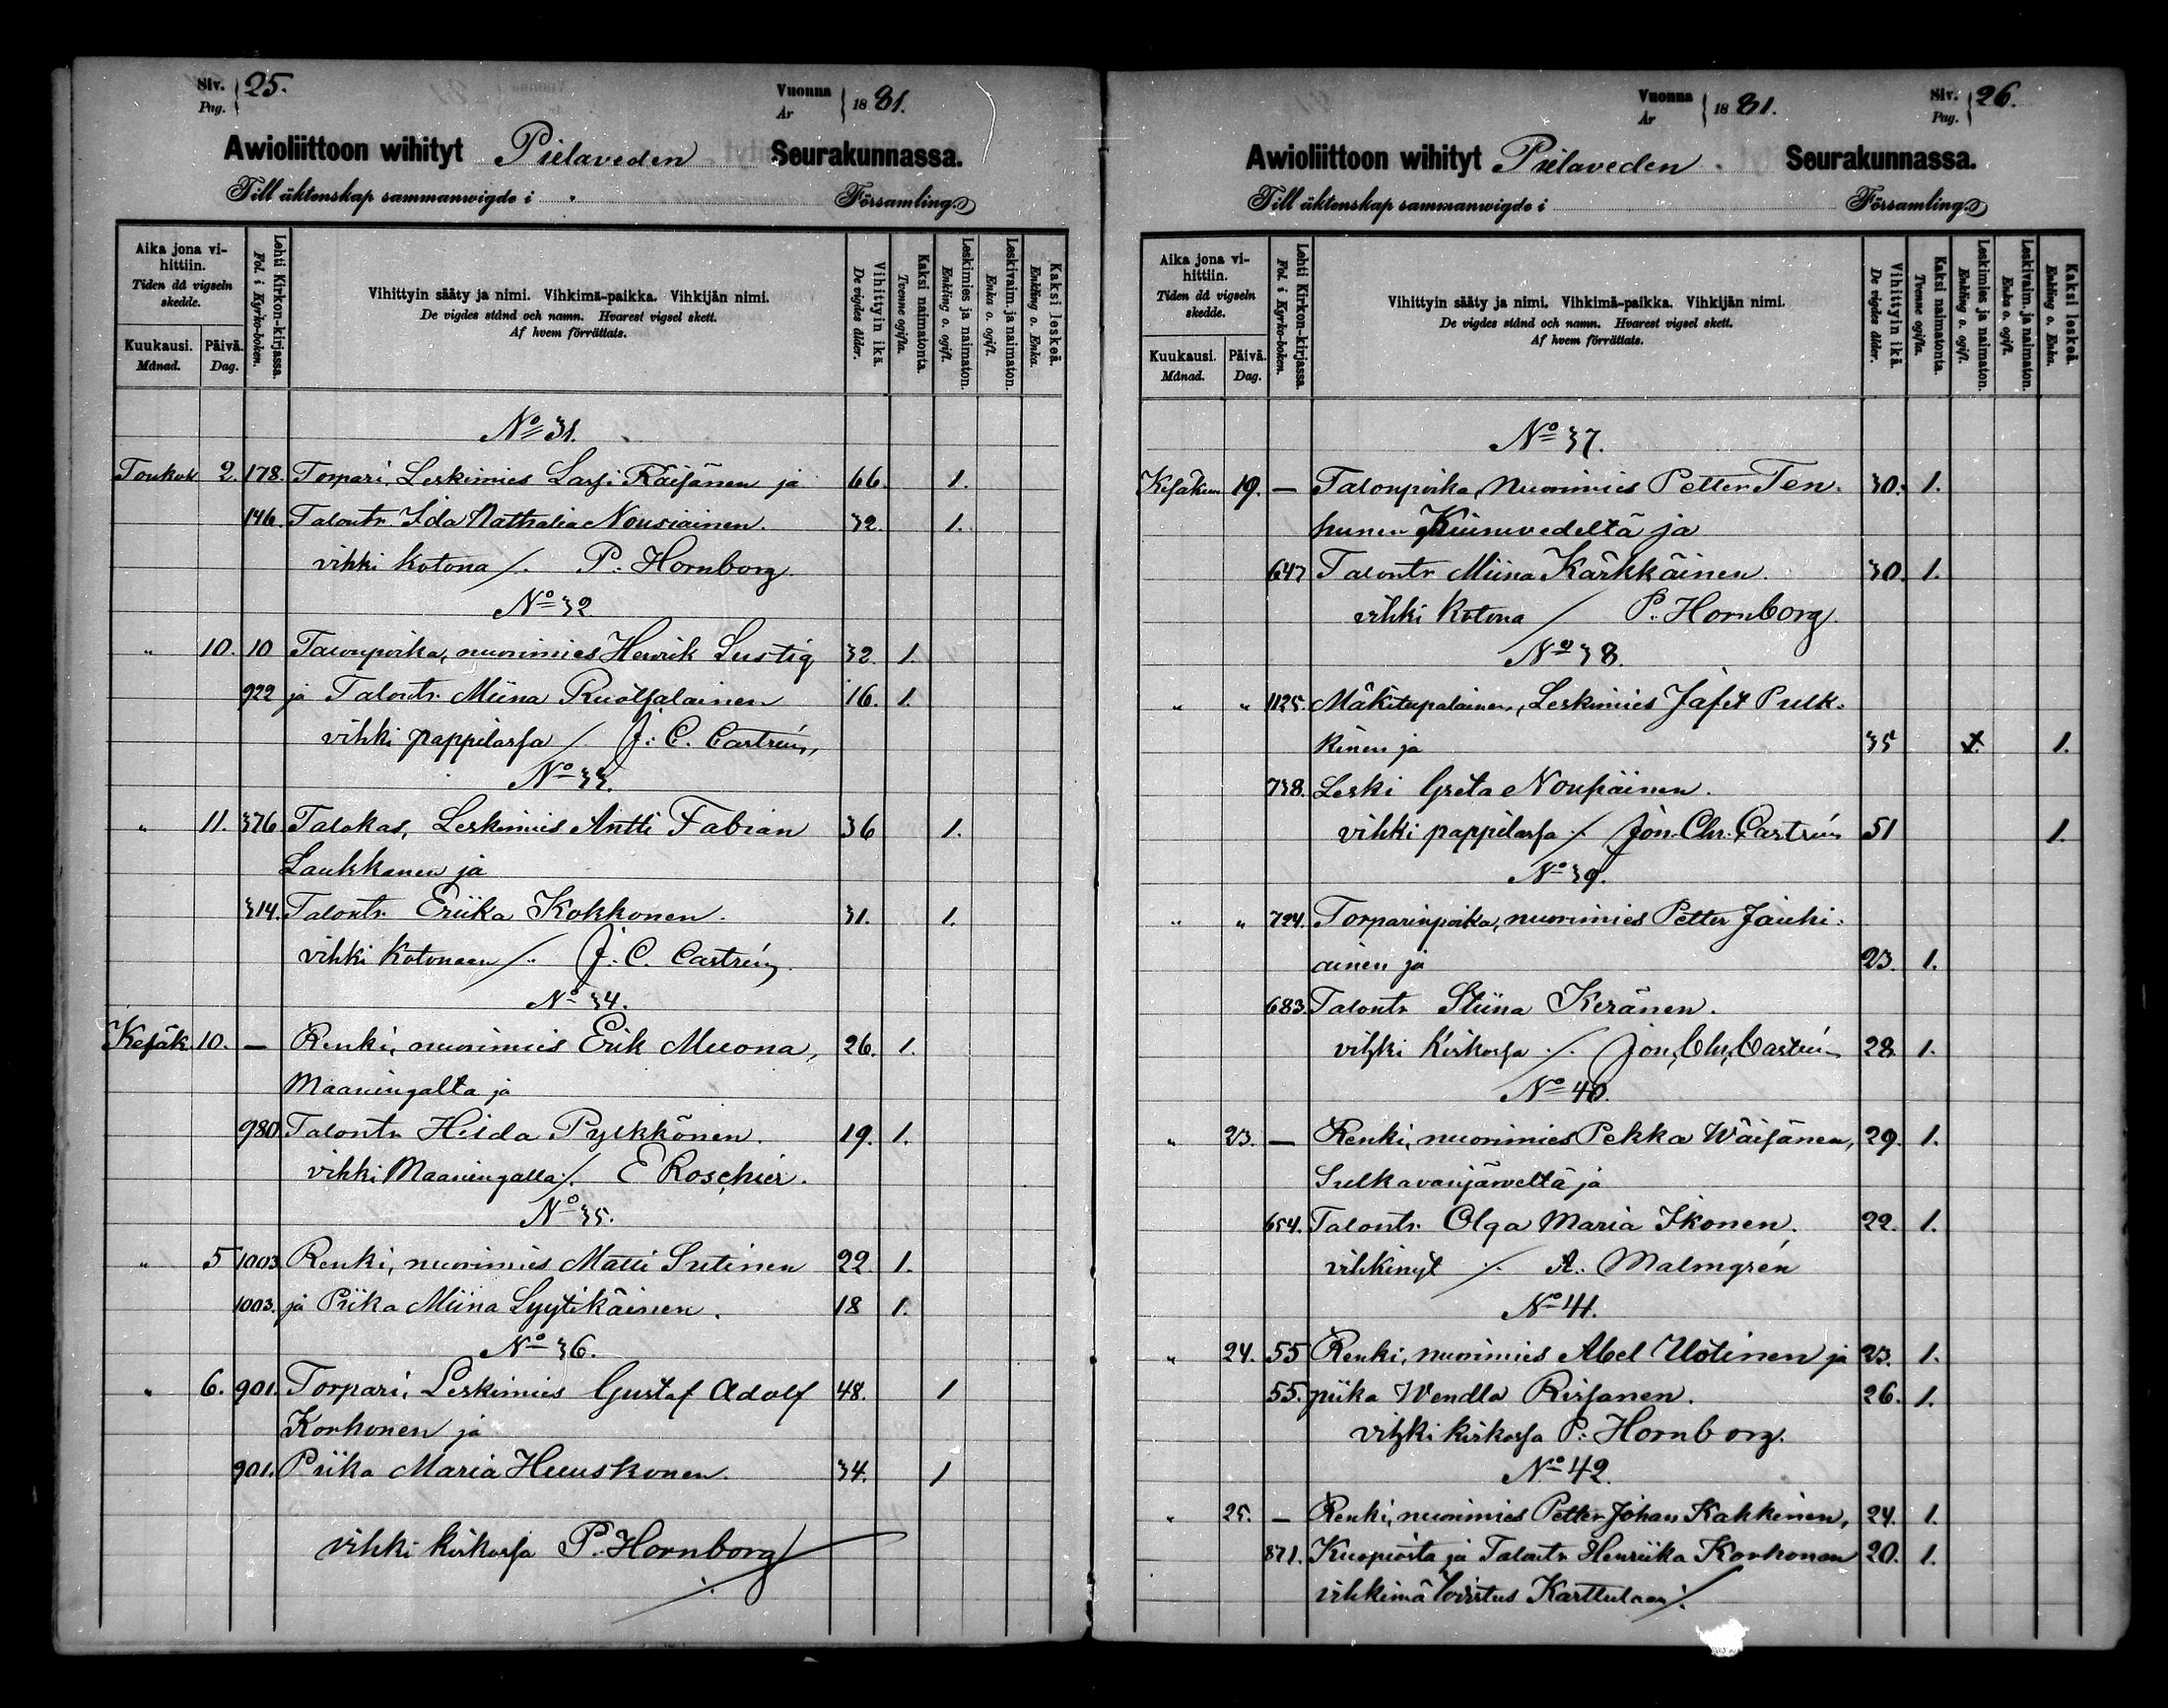 Siv. Pag. 25.
Vuonna År 1881.
Awioliittoon wihityt Pielaveden Seurakunnassa.
Till äktenskap sammanwigde i Församling.
Aika jona vihittiin. Tiden då vigseln skedde.
Kuukausi. Månad.
Päivä. Dag.
Lehti Kirkon-kirjassa. Fol. i Kyrko-boken.
Vihittyin sääty ja nimi. Vihkimä-paikka. Vihkijän nimi.
De vigdes stånd och namn. Hvarest vigsel skett.
Af hvem förrättats.
Vihittyin ikä. De vigdes ålder.
Kaksi naimatonta. Tvenne ogifta.
Leskimies ja naimaton. Enkling o. ogift.
Leskivaim. ja naimaton. Enka o. ogift.
Kaksi leskeä. Enkling o. Enka.
No 31.
Toukok 2. 178. Torpari, Leskimies Lassi Räisänen ja 66. 1.
146. Talontr. Ida Nathalia Nousiainen. 32. 1.
vihki kotona /. P. Hornborg.
No 32
" 10. 10 Talonpoika, nuorimies Henrik Lustig 32. 1.
922 ja Talontr. Miina Ruotsalainen 16. 1.
vihki pappilassa /. J. C. Castrén,
No 33.
" 11. 376. Talokas, Leskimies Antti Fabian 36 1.
Laukkanen ja
314. Talontr. Eriika Kokkonen. 31. 1.
vihki kotonaan /. J. C. Castrén,
No 34.
Kesäk. 10. — Renki, nuorimies Erik Muona, 26. 1.
Maaningalta ja
980. Talontr Hilda Pylkkönen. 19. 1.
vihki Maaningalla /. E Roschier.
No 35.
" 5 1003. Renki, nuorimies Matti Sutinen 22. 1.
1003. ja Piika Miina Lyytikäinen. 18 1.
No 36.
" 6. 901. Torpari, Leskimies Gustaf Adolf 48. 1
Korhonen ja
901. Piika Maria Huuskonen. 34. 1
vihki kirkossa P. Hornborg /.
Vuonna År 1881.
Siv. Pag. 26.
Awioliittoon wihityt Pielaveden Seurakunnassa.
Till äktenskap sammanwigde i Församling.
Aika jona vihittiin. Tiden då vigseln skedde.
Kuukausi. Månad.
Päivä. Dag.
Lehti Kirkon-kirjassa. Fol. i Kyrko-boken.
Vihittyin sääty ja nimi. Vihkimä-paikka. Vihkijän nimi.
De vigdes stånd och namn. Hvarest vigsel skett.
Af hvem förrättats.
Vihittyin ikä. De vigdes ålder.
Kaksi naimatonta. Tvenne ogifta.
Leskimies ja naimaton. Enkling o. ogift.
Leskivaim. ja naimaton. Enka o. ogift.
Kaksi leskeä. Enkling o. Enka.
No 37.
Kesäkuu 19. — Talonpoika, Nuorimies Petter Ten- 30. 1.
hunen Kiuruvedeltä ja
647 Talontr Miina Kärkkäinen. 30. 1.
vihki kotona / P. Hornborg.
No 38.
" " 1125. Mäkitupalainen, Leskimies Jafet Pulk-
kinen ja 35 1. 1.
738. Leski Greta Noupäinen.
vihki pappilassa /. Jon. Chr. Castrén 51 1.
No 39.
" " 724. Torparinpoika, nuorimies Petter Jauhi-
ainen ja 23. 1.
683. Talontr Stiina Keränen.
vihki kirkossa /. Jon. Chr. Castrén 28. 1.
No 40.
" 23. — Renki, nuorimies Pekka Wäisänen, 29. 1.
Sulkavanjärveltä ja
654. Talontr. Olga Maria Ikonen. 22. 1.
vihkinyt /. A. Malmgrén
No 41.
" 24. 55 Renki, nuorimies Abel Uotinen ja 23. 1.
55. piika Wendla Rissanen. 26. 1.
vihki kirkossa P. Hornborg.
No 42.
" 25. — Renki, nuorimies Petter Johan Kakkinen, 24. 1.
871. Kuopiosta ja Talontr Henriika Korhonen 20. 1.
vihkimä todistus Karttulaan /.